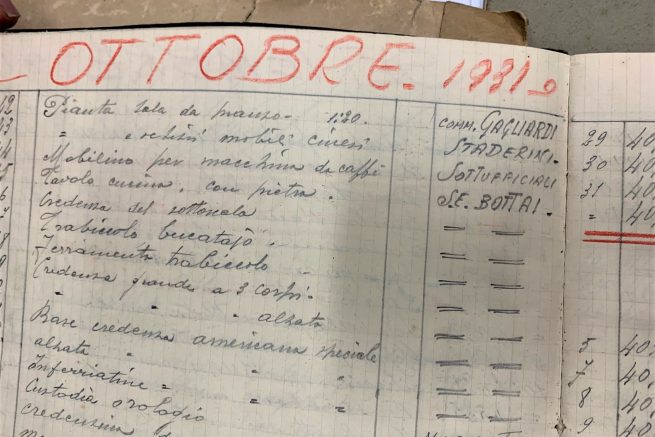 OTTOBRE. 1931
42 Pianta sala da pranzo. 1:20. COMM. GAGLIARDI 29 40,
43 " " schizzi mobili cinesi STADERINI. 30 40,
44 Mobilino per macchina da caffè SOTTUFFICIALI 31 40,
Tavolo cucina. con pietra. S.E. BOTTAI. = 40,
Credenza del sottoscala = =
Trabiccolo bucatajo. = =
Ferramenta trabiccolo = =
Credenza grande a 3 corpi. = =
" " " alzata = =
Base credenza americana speciale = = 5 40,
alzata " " " = = 7 40,
Inferriatine = = = = = 8 40,
Custodia orologio = = 9 40,
credenzina